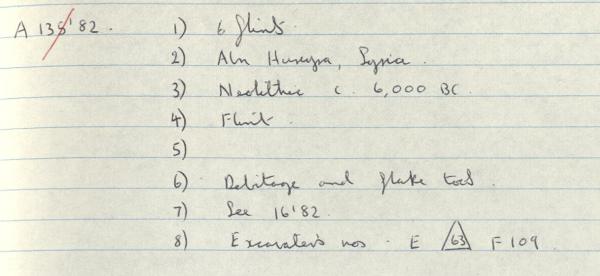 A 135'82. 1) 6 flints.
2) Abu Hureyra, Syria.
3) Neolithic c. 6,000 BC.
4) Flint.
5)
6) Debitage and flake tools.
7) See 16'82.
8) Excavater's nos. E 63 F 109